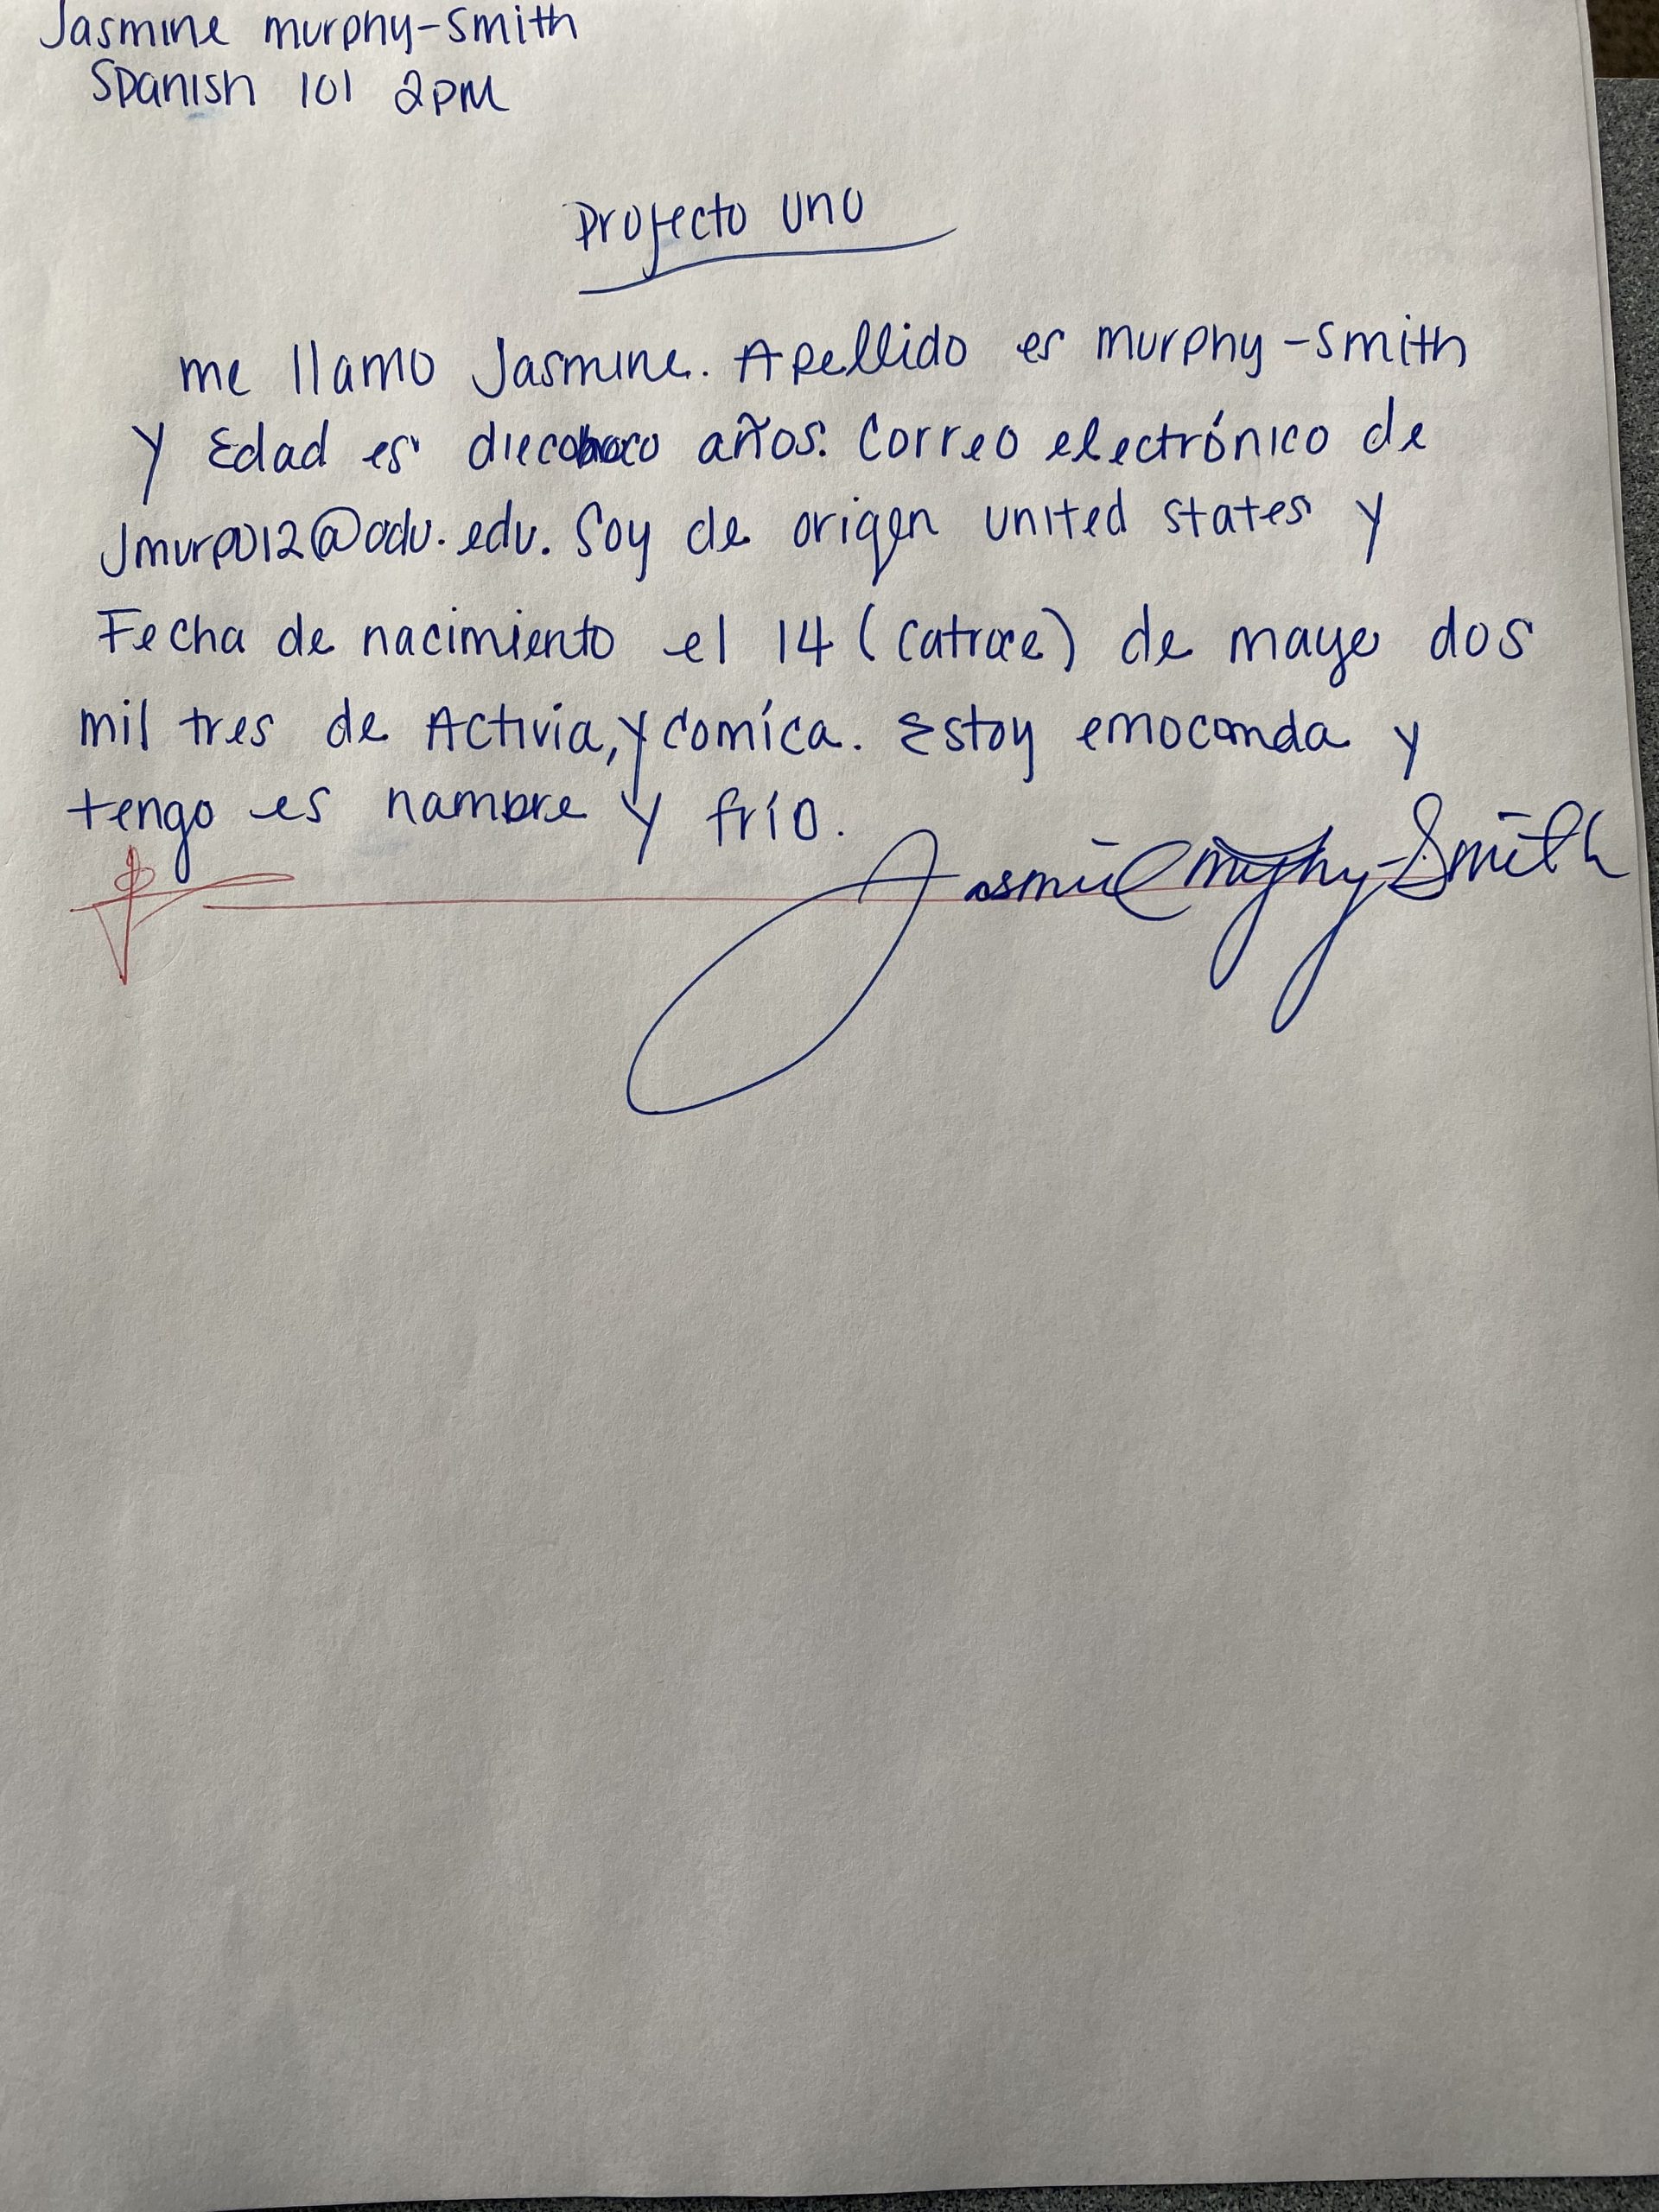 Jasmine murphy-smith
Spanish 101 2PM
Proyecto uno
me llamo Jasmine. Apellido es murphy-smith
y Edad es años. Correo electrónico de
Jmurp012@odu.edu. Soy de origen united states y
Fecha de nacimiento el 14 (catroce) de mayo dos
mil tres de Activia, y comíca. Estoy emoconda y
tengo es nambre y frío.
Jasmine Murphy-Smith